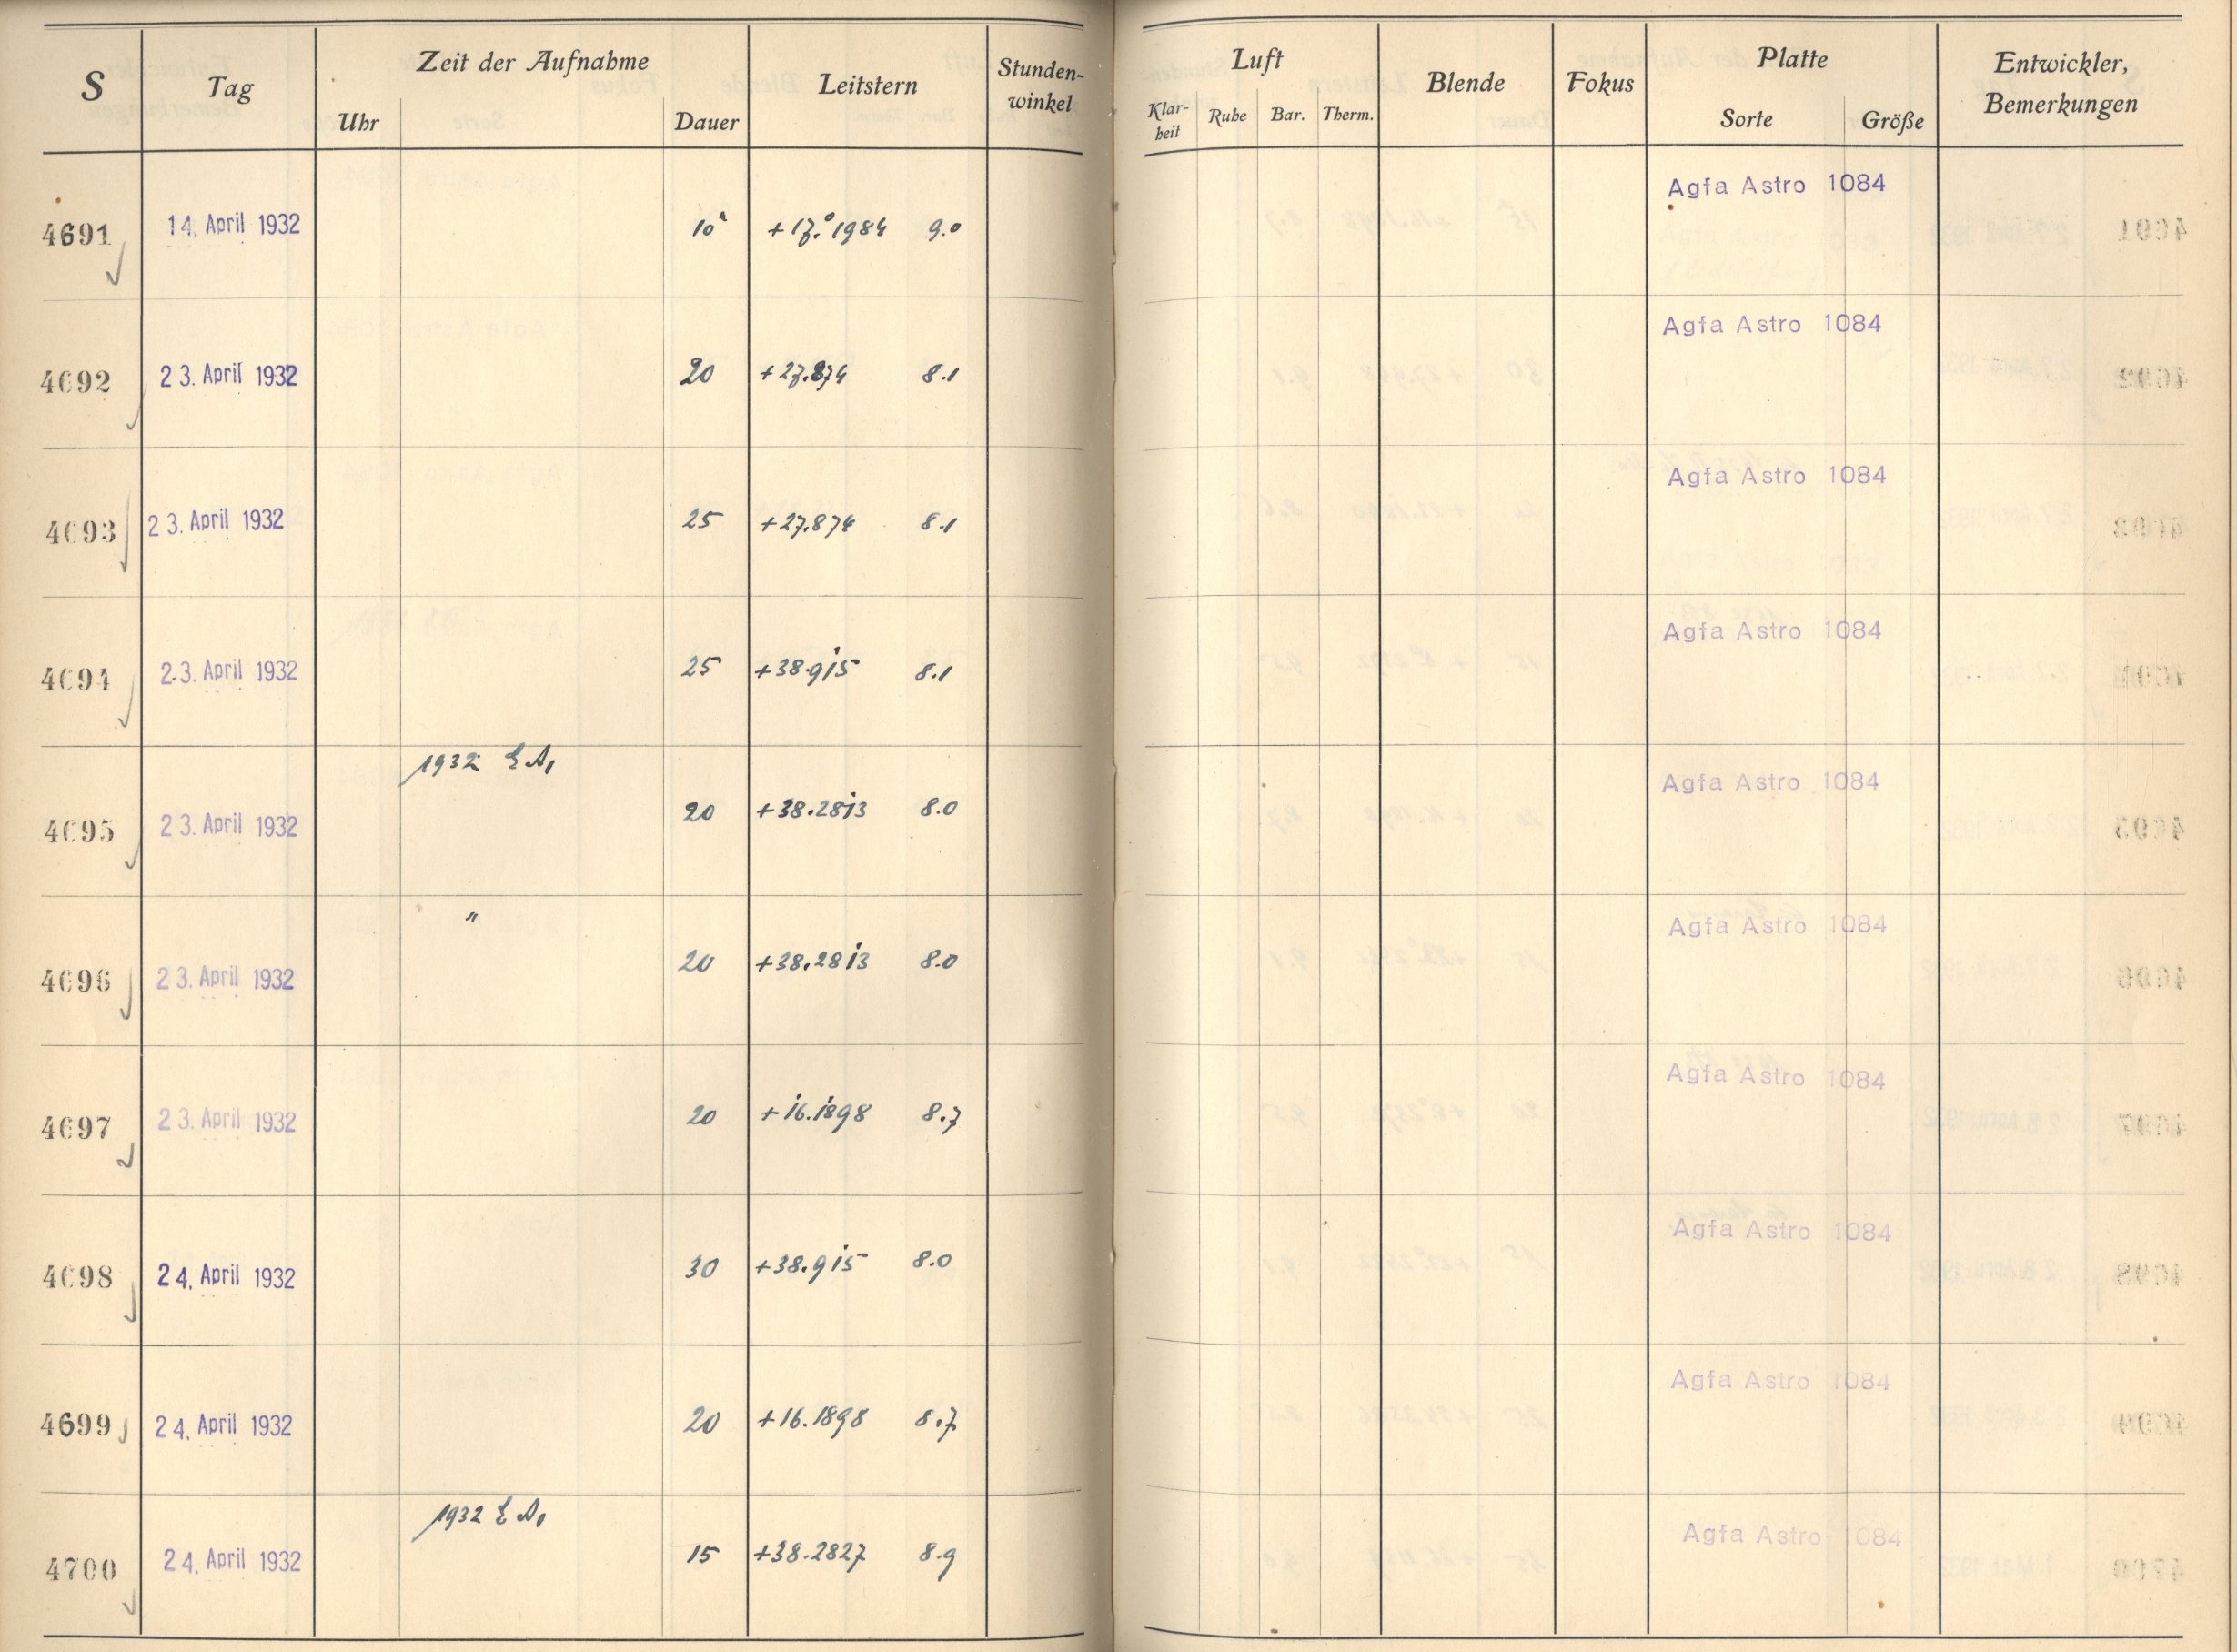 S Tag Zeit der Aufnahme Leitstern Stunden-winkel Luft Blende Fokus Platte Entwickler, Bemerkungen
Uhr Dauer Klar-heit Ruhe Bar. Therm. Sorte Größe
Agfa Astro 1084
4691 14. April 1932 10 +17.°1984 9.0
Agfa Astro 1084
4692 23. April 1932 20 +27.874 8.1
Agfa Astro 1084
4693 23. April 1932 25 +27.874 8.1
Agfa Astro 1084
4694 23. April 1932 25 +38.915 8.1
1932 EA₁ Agfa Astro 1084
4695 23. April 1932 20 +38.2813 8.0
" Agfa Astro 1084
4696 23. April 1932 20 +38.2813 8.0
Agfa Astro 1084
4697 23. April 1932 20 +16.1898 8.7
Agfa Astro 1084
4698 24. April 1932 30 +38.915 8.0
Agfa Astro 1084
4699 24. April 1932 20 +16.1898 8.7
1932 EA₁ Agfa Astro 1084
4700 24. April 1932 15 +38.2827 8.9